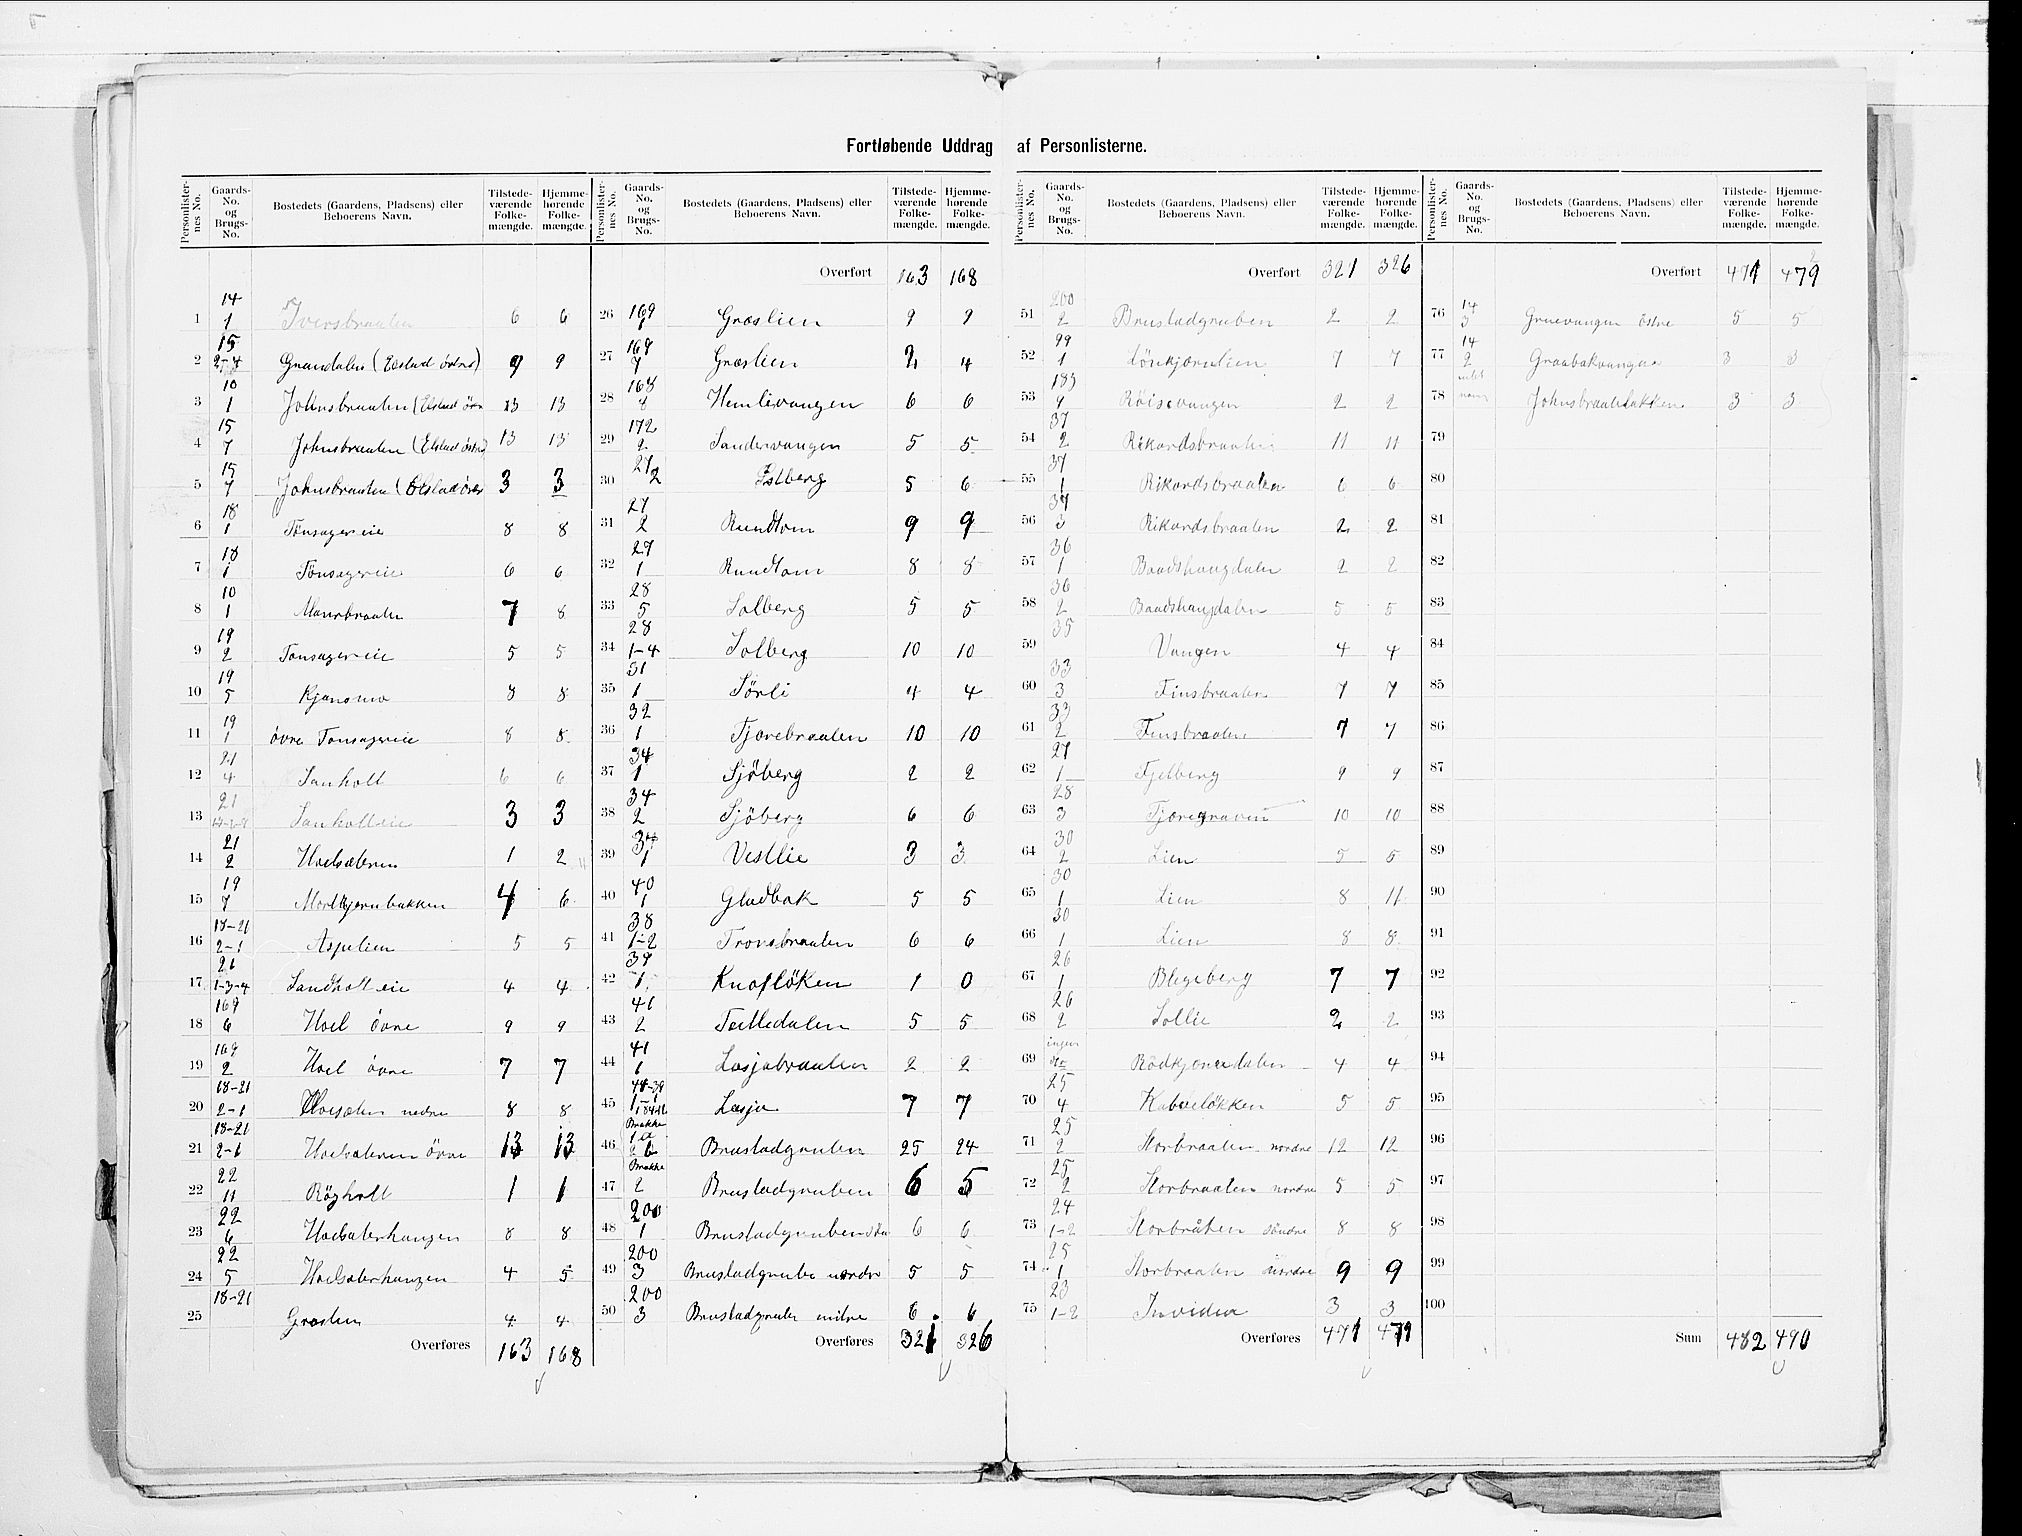 Fortløbende Uddrag af Personlisterne.
Personlister-nes No. | Gaards-No. og Brugs-No. | Bostedets (Gaardens, Pladsens) eller Beboerens Navn. | Tilstede-værende Folke-mængde. | Hjemme-hørende Folke-mængde.
1 | 14 1 | Iversbraaten | 6 | 6
2 | 15 2-4 | Grandalen (Elstad östre) | 9 | 9
3 | 10 1 | Johnsbraaten (Elstad övr | 13 | 13
4 | 15 7 | Johnsbraaten (Elstad östre) | 13 | 13
5 | 15 7 | Johnsbraaten (Elstad övre | 3 | 3
6 | 18 1 | Tönsagereie | 8 | 8
7 | 18 1 | Tönsagereie | 6 | 6
8 | 10 1 | Maurbraaten | 7 | 8
9 | 19 2 | Tonsagereie | 5 | 5
10 | 19 5 | Kjønsmo | 8 | 8
11 | 19 1 | övre Tonsagereie | 8 | 8
12 | 21 4 | Sanholt | 6 | 6
13 | 21 | Sanholteie | 3 | 3
14 | 21 2 | Hoelsæteren | 1 | 2
15 | 19 7 | Mortkjernbakken | 4 | 6
16 | 18-21 2-1 | Aspelien | 5 | 5
17 | 21 1-3-4 | Sandholteie | 4 | 4
18 | 169 6 | Hoel övre | 9 | 9
19 | 169 2 | Hoel övre | 7 | 7
20 | 18-21 2-1 | Hoelsæter nedre | 8 | 8
21 | 18-21 2-1 | Hoelsæteren övre | 13 | 13
22 | 22 11 | Röyholt | 1 | 1
23 | 22 6 | Hoelsæterhaugen | 8 | 8
24 | 22 5 | Hoelsæterhaugen | 4 | 5
25 | 18-21 | Græslien | 4 | 4
Overføres | 163 | 168
Personlister-nes No. | Gaards-No. og Brugs-No. | Bostedets (Gaardens, Pladsens) eller Beboerens Navn. | Tilstede-værende Folke-mængde. | Hjemme-hørende Folke-mængde.
Overført | 163 | 168
26 | 169 | Græslien | 9 | 9
27 | 169 7 | Græslien | 2 | 4
28 | 168 8 | Hemlivangen | 6 | 6
29 | 172 2 | Sandervangen | 5 | 5
30 | 27 2 | Solberg | 5 | 6
31 | 27 2 | Rundtom | 9 | 9
32 | 27 1 | Rundtom | 8 | 8
33 | 28 5 | Solberg | 5 | 5
34 | 28 1-4 | Solberg | 10 | 10
35 | 31 1 | Sörli | 4 | 4
36 | 32 1 | Tjærebraaten | 10 | 10
37 | 34 1 | Sjöberg | 2 | 2
38 | 34 2 | Sjöberg | 6 | 6
39 | 1 | Vestlie | 3 | 3
40 | 40 1 | Gladbak | 5 | 5
41 | 38 1-2 | Tronsbraaten | 6 | 6
42 | 39 1 | Knoflöken | 1 | 0
43 | 41 2 | Teitledalen | 5 | 5
44 | 41 1 | Lasjabraaten | 2 | 2
45 | Lasja | 7 | 7
46 | Brakke | Brustadgruben | 25 | 24
47 | Brakke 2 | Brustadgruben | 6 | 5
48 | 200 1 | Brustadgruben | 6 | 6
49 | 200 3 | Brustadgrube nordre | 5 | 5
50 | 200 3 | Brustadgruben midre | 6 | 6
Overføres | 321 | 326
Personlister-nes No. | Gaards-No. og Brugs-No. | Bostedets (Gaardens, Pladsens) eller Beboerens Navn. | Tilstede-værende Folke-mængde. | Hjemme-hørende Folke-mængde.
Overført | 321 | 326
51 | 200 2 | Brustadgruben | 2 | 2
52 | 99 1 | Lönkjærnlien | 7 | 7
53 | 183 | Röisevangen | 2 | 2
54 | 37 2 | Rikardsbraaten | 11 | 11
55 | 37 1 | Rikardsbraaten | 6 | 6
56 | 37 3 | Rikardsbraaten | 2 | 2
57 | 36 1 | Baadshaugdalen | 2 | 2
58 | 36 2 | Baadshaugdalen | 5 | 5
59 | 35 | Vangen | 4 | 4
60 | 33 3 | Finsbraaten | 7 | 7
61 | 33 2 | Finsbraaten | 7 | 7
62 | 27 1 | Fjelberg | 9 | 9
63 | 28 3 | Tjæregraven | 10 | 10
64 | 30 2 | Lien | 5 | 5
65 | 30 1 | Lien | 8 | 11
66 | 30 1 | Lien | 8 | 8
67 | 26 1 | Blegeberg | 7 | 7
68 | 26 2 | Sollie | 2 | 2
69 | ingen No | Rödkjernsdalen | 4 | 4
70 | 25 4 | Kabbelökken | 5 | 5
71 | 25 2 | Storbraaten nordre | 12 | 12
72 | 25 2 | Storbraaten nordre | 5 | 5
73 | 24 1-2 | Storbråten söndre | 8 | 8
74 | 25 1 | Storbraaten nordre | 9 | 9
75 | 23 1-2 | Invidia | 3 | 3
Overføres | 471 | 479
Personlister-nes No. | Gaards-No. og Brugs-No. | Bostedets (Gaardens, Pladsens) eller Beboerens Navn. | Tilstede-værende Folke-mængde. | Hjemme-hørende Folke-mængde.
Overført | 471 | 479
76 | 14 3 | Gruevangen östre | 5 | 5
77 | 14 2 | Graabakvangen | 3 | 3
78 | Johnsbraatebakken | 3 | 3
79
80
81
82
83
84
85
86
87
88
89
90
91
92
93
94
95
96
97
98
99
100
Sum | 482 | 490